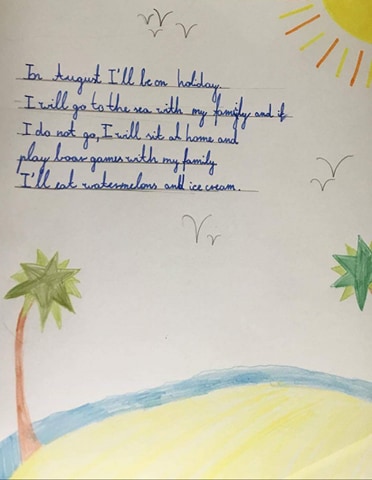 In August I'll be on holiday.
I will go to the sea with my family and if
I do not go, I will sit at home and
play boar games with my family
I'll eat watermelons and ice cream.